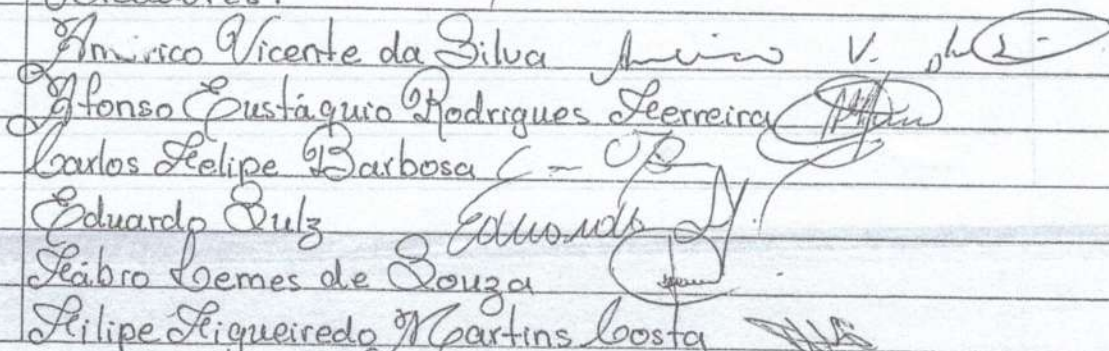 Vereadores:
Américo Vicente da Silva
Afonso Eustáquio Rodrigues Ferreira
Carlos Felipe Barbosa
Eduardo Sulz Eduardo
Fábro Lemes de Souza
Filipe Figueiredo Martins Costa